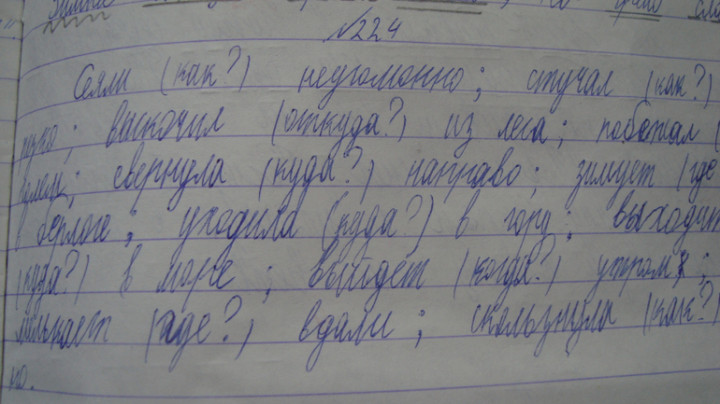 №224
Сеяли (как?) неугомонно; стучал (как?)
выскочил (откуда?) из леса; побежал (
свернула (куда?) направо; зимует (где
берлоге; уходила (куда?) в гору; выходит
(куда?) в море; выйдет (когда?) утром;
мелькает (где?) вдали; скользнула (как?)
но.